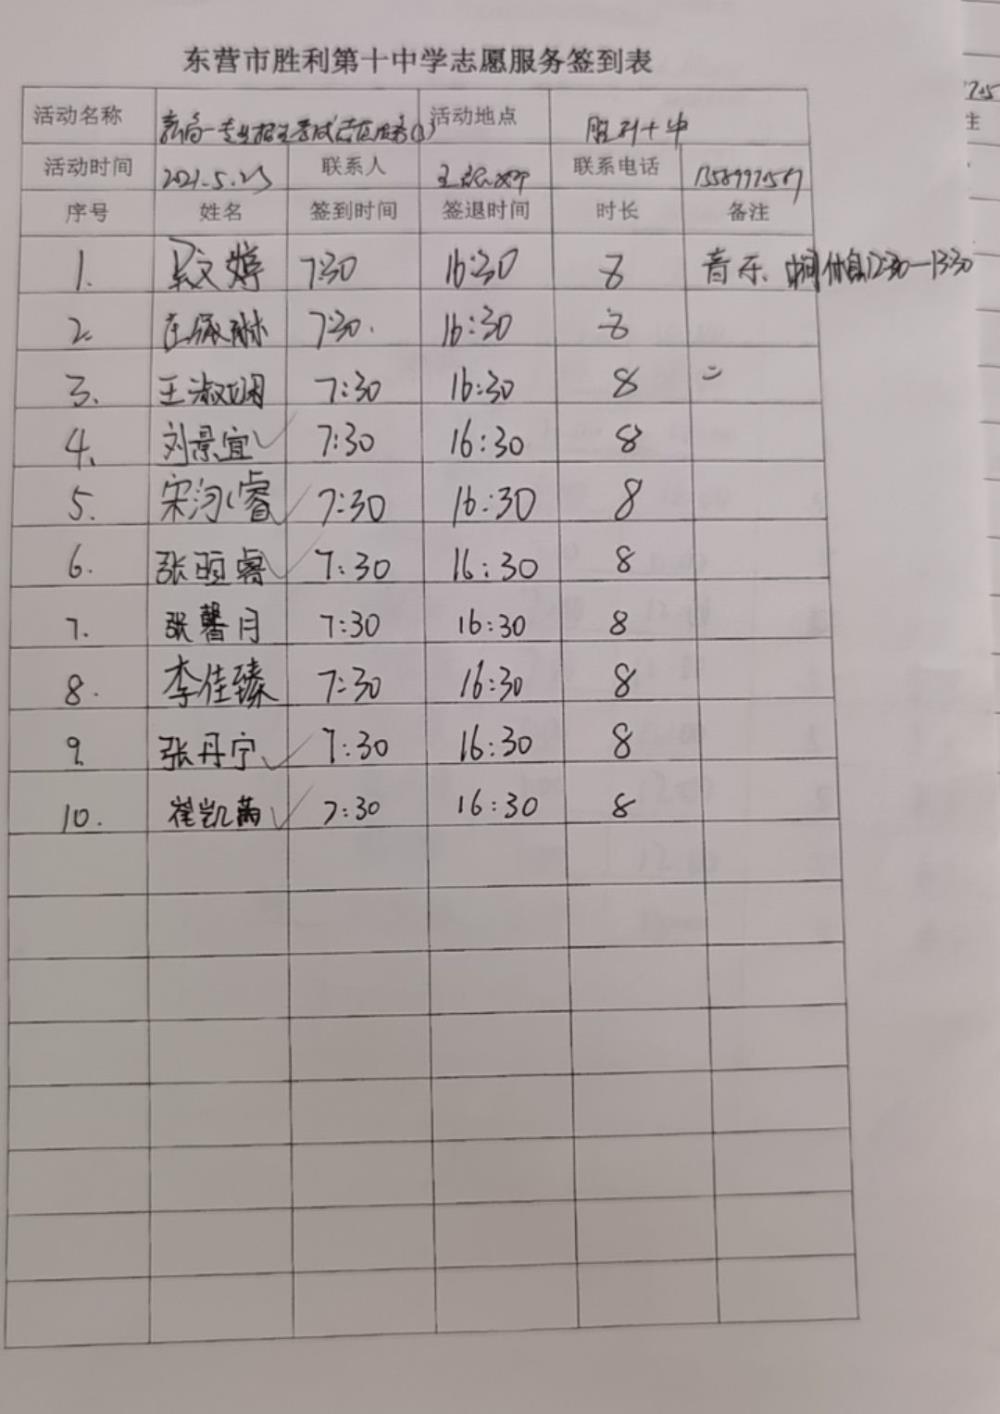 东营市胜利第十中学志愿服务签到表
活动名称 新高一专业招生考试志愿服务 活动地点 胜利十中
活动时间 2021.5.23 联系人 联系电话
序号 姓名 签到时间 签退时间 时长 备注
1. 文婷 7:30 16:30 8 音乐、中间休息12:30—13:30
2. 7:30. 16:30 8
3. 王淑娴 7:30 16:30 8 =
4. 刘景宜 7:30 16:30 8
5. 宋 睿 7:30 16:30 8
6. 张 睿 7:30 16:30 8
7. 张馨月 7:30 16:30 8
8. 李佳臻 7:30 16:30 8
9. 张丹宁 7:30 16:30 8
10. 崔凯 7:30 16:30 8